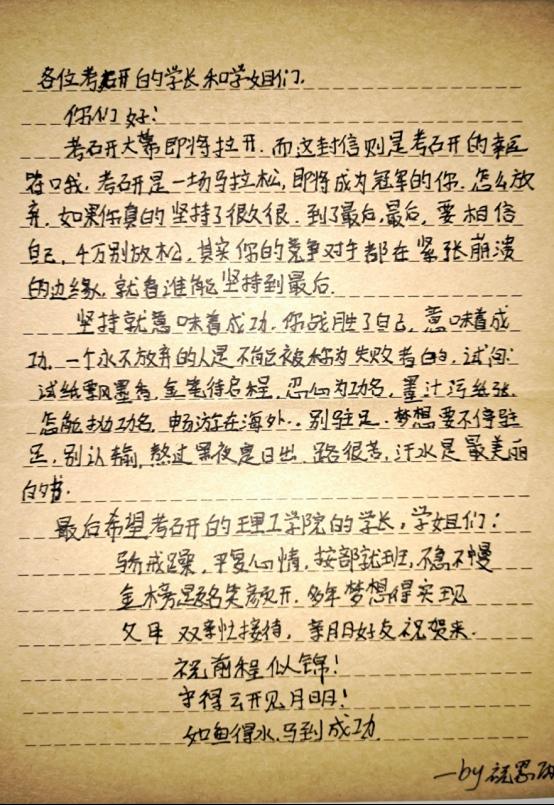 各位考研的学长和学姐们.
你们好:
考研大幕即将拉开.而这封信则是考研的幸运
符哦.考研是一场马拉松,即将成为冠军的你.怎么放
弃.如果你真的坚持了很久很.到了最后,最后,要相信
自己,千万别放松,其实你的竞争对手都在紧张崩溃
的边缘,就看谁能坚持到最后.
坚持就意味着成功.你战胜了自己,意味着成
功.一个永不放弃的人是不能被称为失败者的,试问:
试纸飘墨香,金笔待启程,忍心为功名,墨汁污纸张.
怎能抛功名,畅游在海外..别驻足.梦想要不停驻
足,别认输,熬过黑夜是日出.路很苦,汗水是最美丽
的书.
最后希望考研的理工学院的学长,学姐们:
骄戒躁,平复心情,按部就班,不急不慢
金榜题名笑颜开.多年梦想得实现
父母双亲忙接待,亲朋好友祝贺来.
祝前程似锦!
守得云开见月明!
如鱼得水.马到成功.
—by